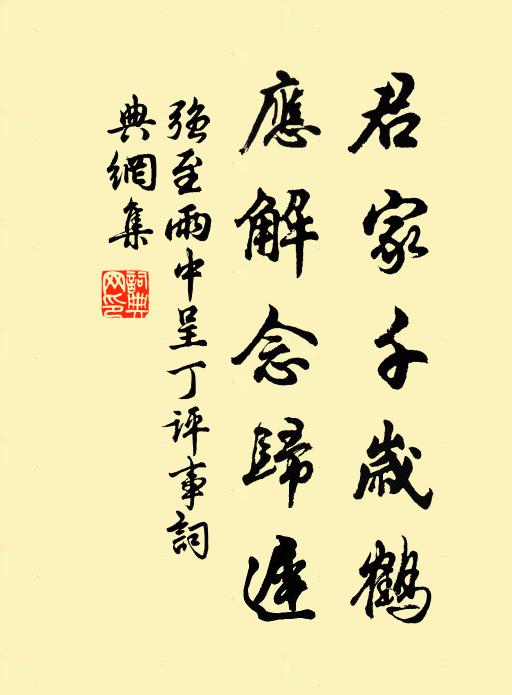 君家千歲鶴
應解念歸遲
強至雨中呈丁評事詞
典網集
詞典網印